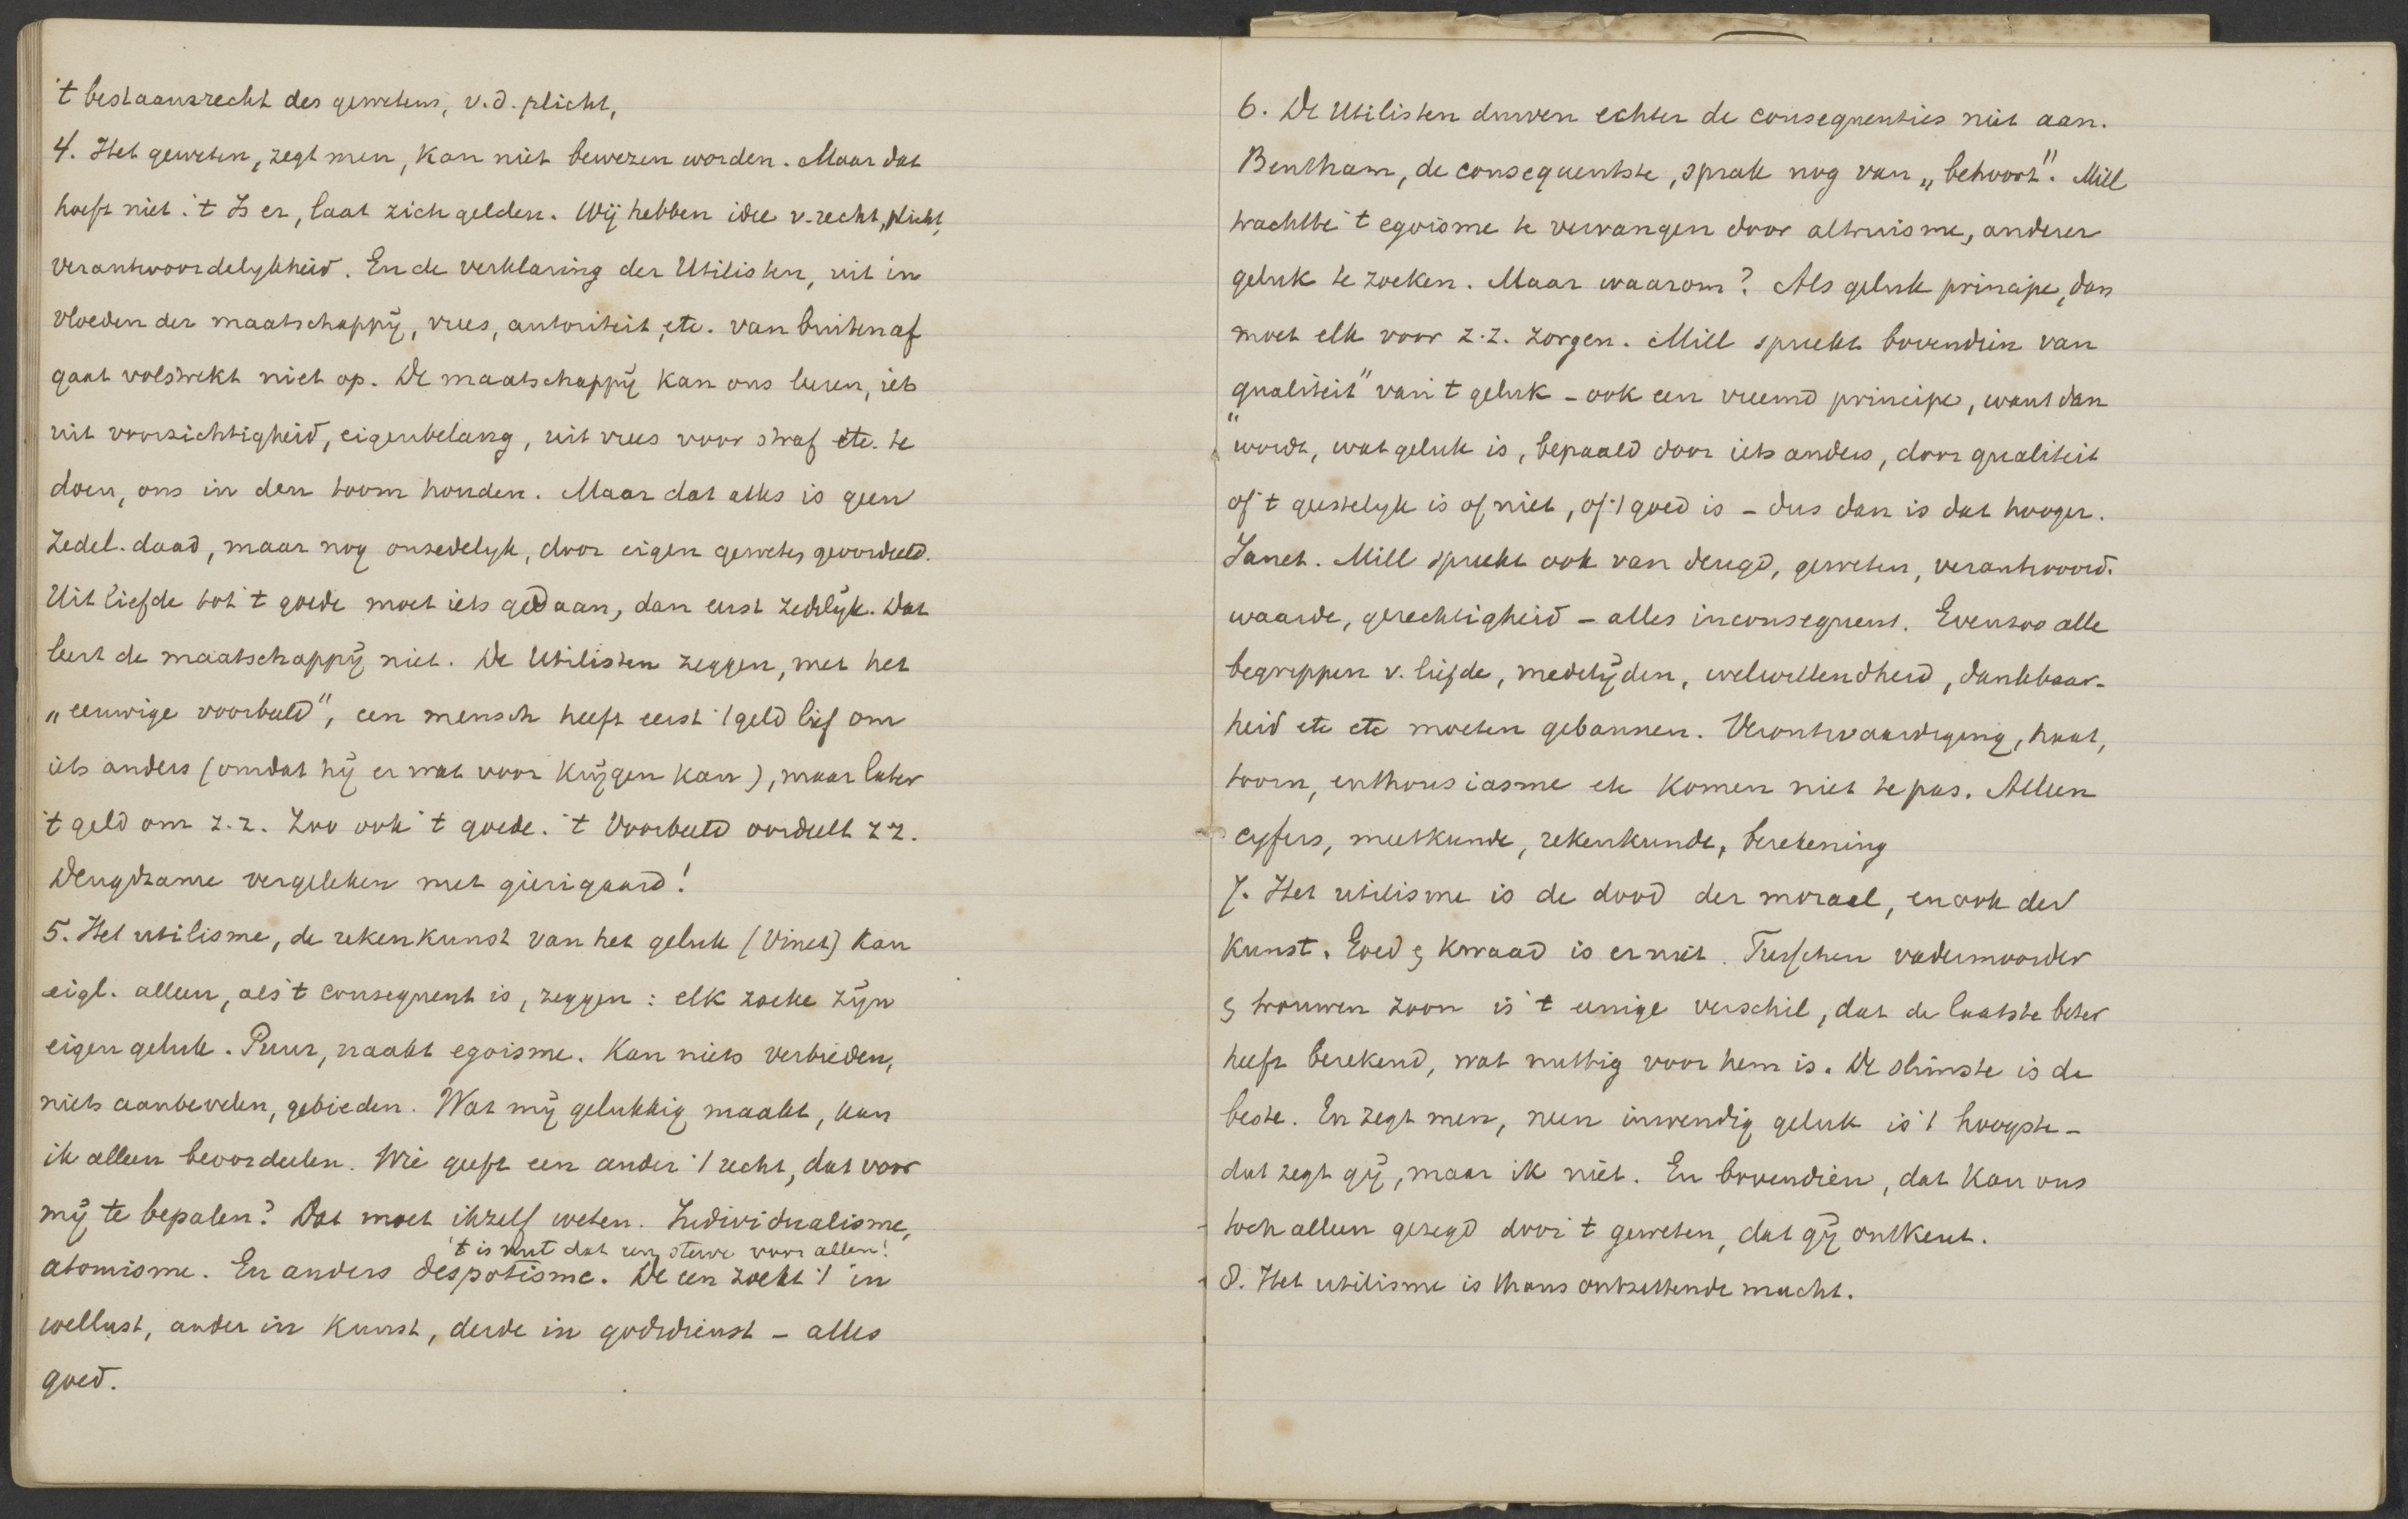 't bestaansrecht des gewetens, v.d. plicht,
4. Het geweten, zegt men, kan niet bewezen worden. Maar dat
hoeft niet. 't Is er, laat zich gelden. Wij hebben idee v. recht, plicht,
verantwoordelykheid. En de verklaring der Utilisten, uit in
vloeden der maatschappÿ, vrees, autoriteit, etc. van buiten af
gaat volstrekt niet op. De maatschappÿ kan ons leeren, iets
uit voorzichtigheid, eigenbelang, uit vrees voor straf etc. te
doen, ons in den toom houden. Maar dat alles is geen
zedel. daad, maar nog onzedelyk, door eigen geweten geoordeeld.
Uit liefde tot 't goede moet iets gedaan, dan eerst zedelÿk. Dat
leert de maatschappÿ niet. De Utilisten zeggen, met het
„eeuwige voorbeeld", een mensch heeft eerst 't geld lief om
iets anders (omdat hÿ er wat voor krÿgen kan), maar later
't geld om z.z. Zoo ook 't goede. 't Voorbeeld oordeelt z.z.
Deugdzame vergeleken met gierigaard!
5. Het utilisme, de rekenkunst van het geluk (Vinet) kan
eigl. alleen, als 't consequent is, zeggen: elk zoeke zÿn
eigen geluk. Puur, naakt egoisme. Kan niets verbieden,
niets aanbevelen, gebieden. Wat mÿ gelukkig maakt, kan
ik alleen beoordeelen. Wie geeft een ander 't recht, dat voor
mÿ te bepalen? Dat moet ikzelf weten. Individualisme,
't is nut dat een sterve voor allen!
atomisme. En anders despotisme. De een zoekt 't in
wellust, ander in kunst, derde in godsdienst – alles
goed.
6. De Utilisten durven echter de consequenties niet aan.
Bentham, de consequentste, sprak nog van „behoort". Mill
trachtte 't egoisme te vervangen door altruisme, anderer
geluk te zoeken. Maar waarom? Als geluk principe, dan
moet elk voor z.z. zorgen. Mill spreekt bovendien van
„qualiteit" van 't geluk – ook een vreemd principe, want dan
wordt, wat geluk is, bepaald door iets anders, door qualiteit
of 't geestelyk is of niet, of 't goed is – dus dan is dat hooger.
Janet. Mill spreekt ook van deugd, geweten, verantwoord.
waarde, gerechtigheid – alles inconsequent. Evenzoo alle
begrippen v. liefde, medelÿden, welwillendheid, dankbaar-
heid etc etc moeten gebannen. Verontwaardiging, haat,
toorn, enthousiasme etc komen niet te pas. Alleen
cyfers, meetkunde, rekenkunde, berekening
7. Het utilisme is de dood der moraal, en ook der
kunst. Goed & kwaad is er niet. Tusschen vadermoorder
& trouwen zoon is 't eenige verschil, dat de laatste beter
heeft berekend, wat nuttig voor hem is. De slimste is de
beste. En zegt men, neen inwendig geluk is 't hoogste –
dat zegt gÿ, maar ik niet. En bovendien, dat kan ons
toch alleen gezegd door 't geweten, dat gÿ ontkent.
8. Het utilisme is thans ontzettende macht.